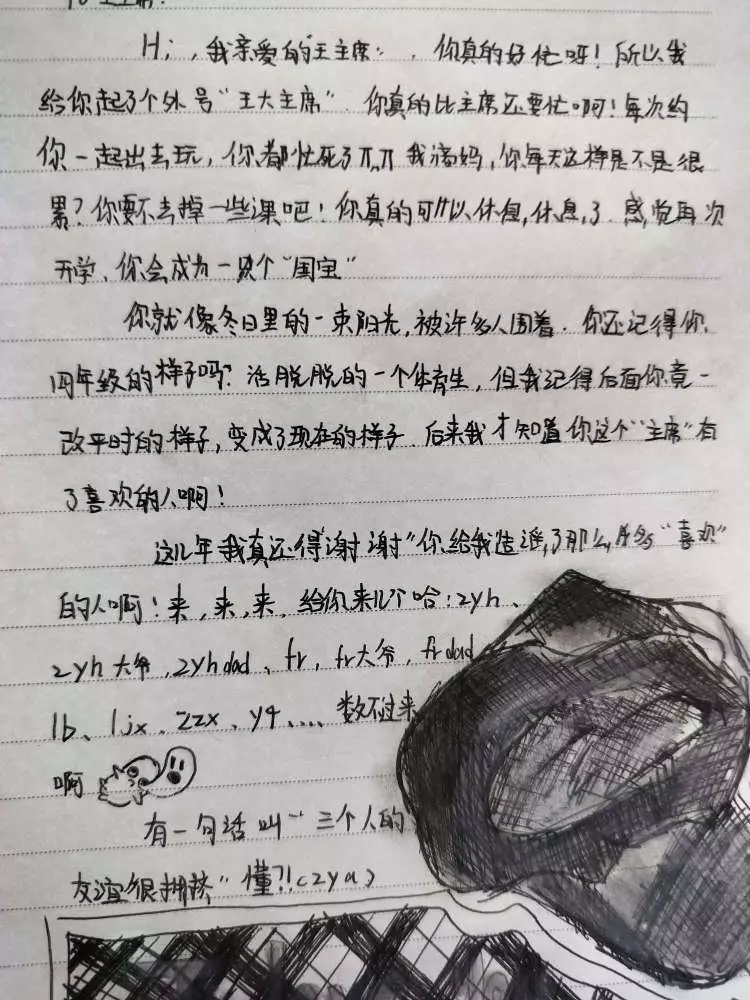 Hi，我亲爱的王主席：，你真的好忙呀！所以我
给你起了个外号“王大主席”．你真的比主席还要忙啊！每次约
你一起出去玩，你都忙死了π.π 我滴妈，你每天这样是不是很
累？你要不去掉一些课吧！你真的可以休息，休息，了．感觉再次
开学、你会成为一只个“国宝”
你就像冬日里的一束阳光，被许多人围着．你还记得你
四年级的样子吗？活脱脱的一个体育生，但我记得后面你竟一
改平时的样子，变成了现在的样子．后来我才知道你这个“主席”有
了喜欢的人啊！
这几年我真还得谢谢“你给我造谣，了那么，多“喜欢”
的人啊！来，来，来．给你来几个哈：zyh、
zyh大爷，zyh dad、fr，fr大爷，fr dad
lb、ljx、zzx、y4、... 数不过来
啊
有一句话叫“三个人的
友谊很拥挤”懂？！（zya）